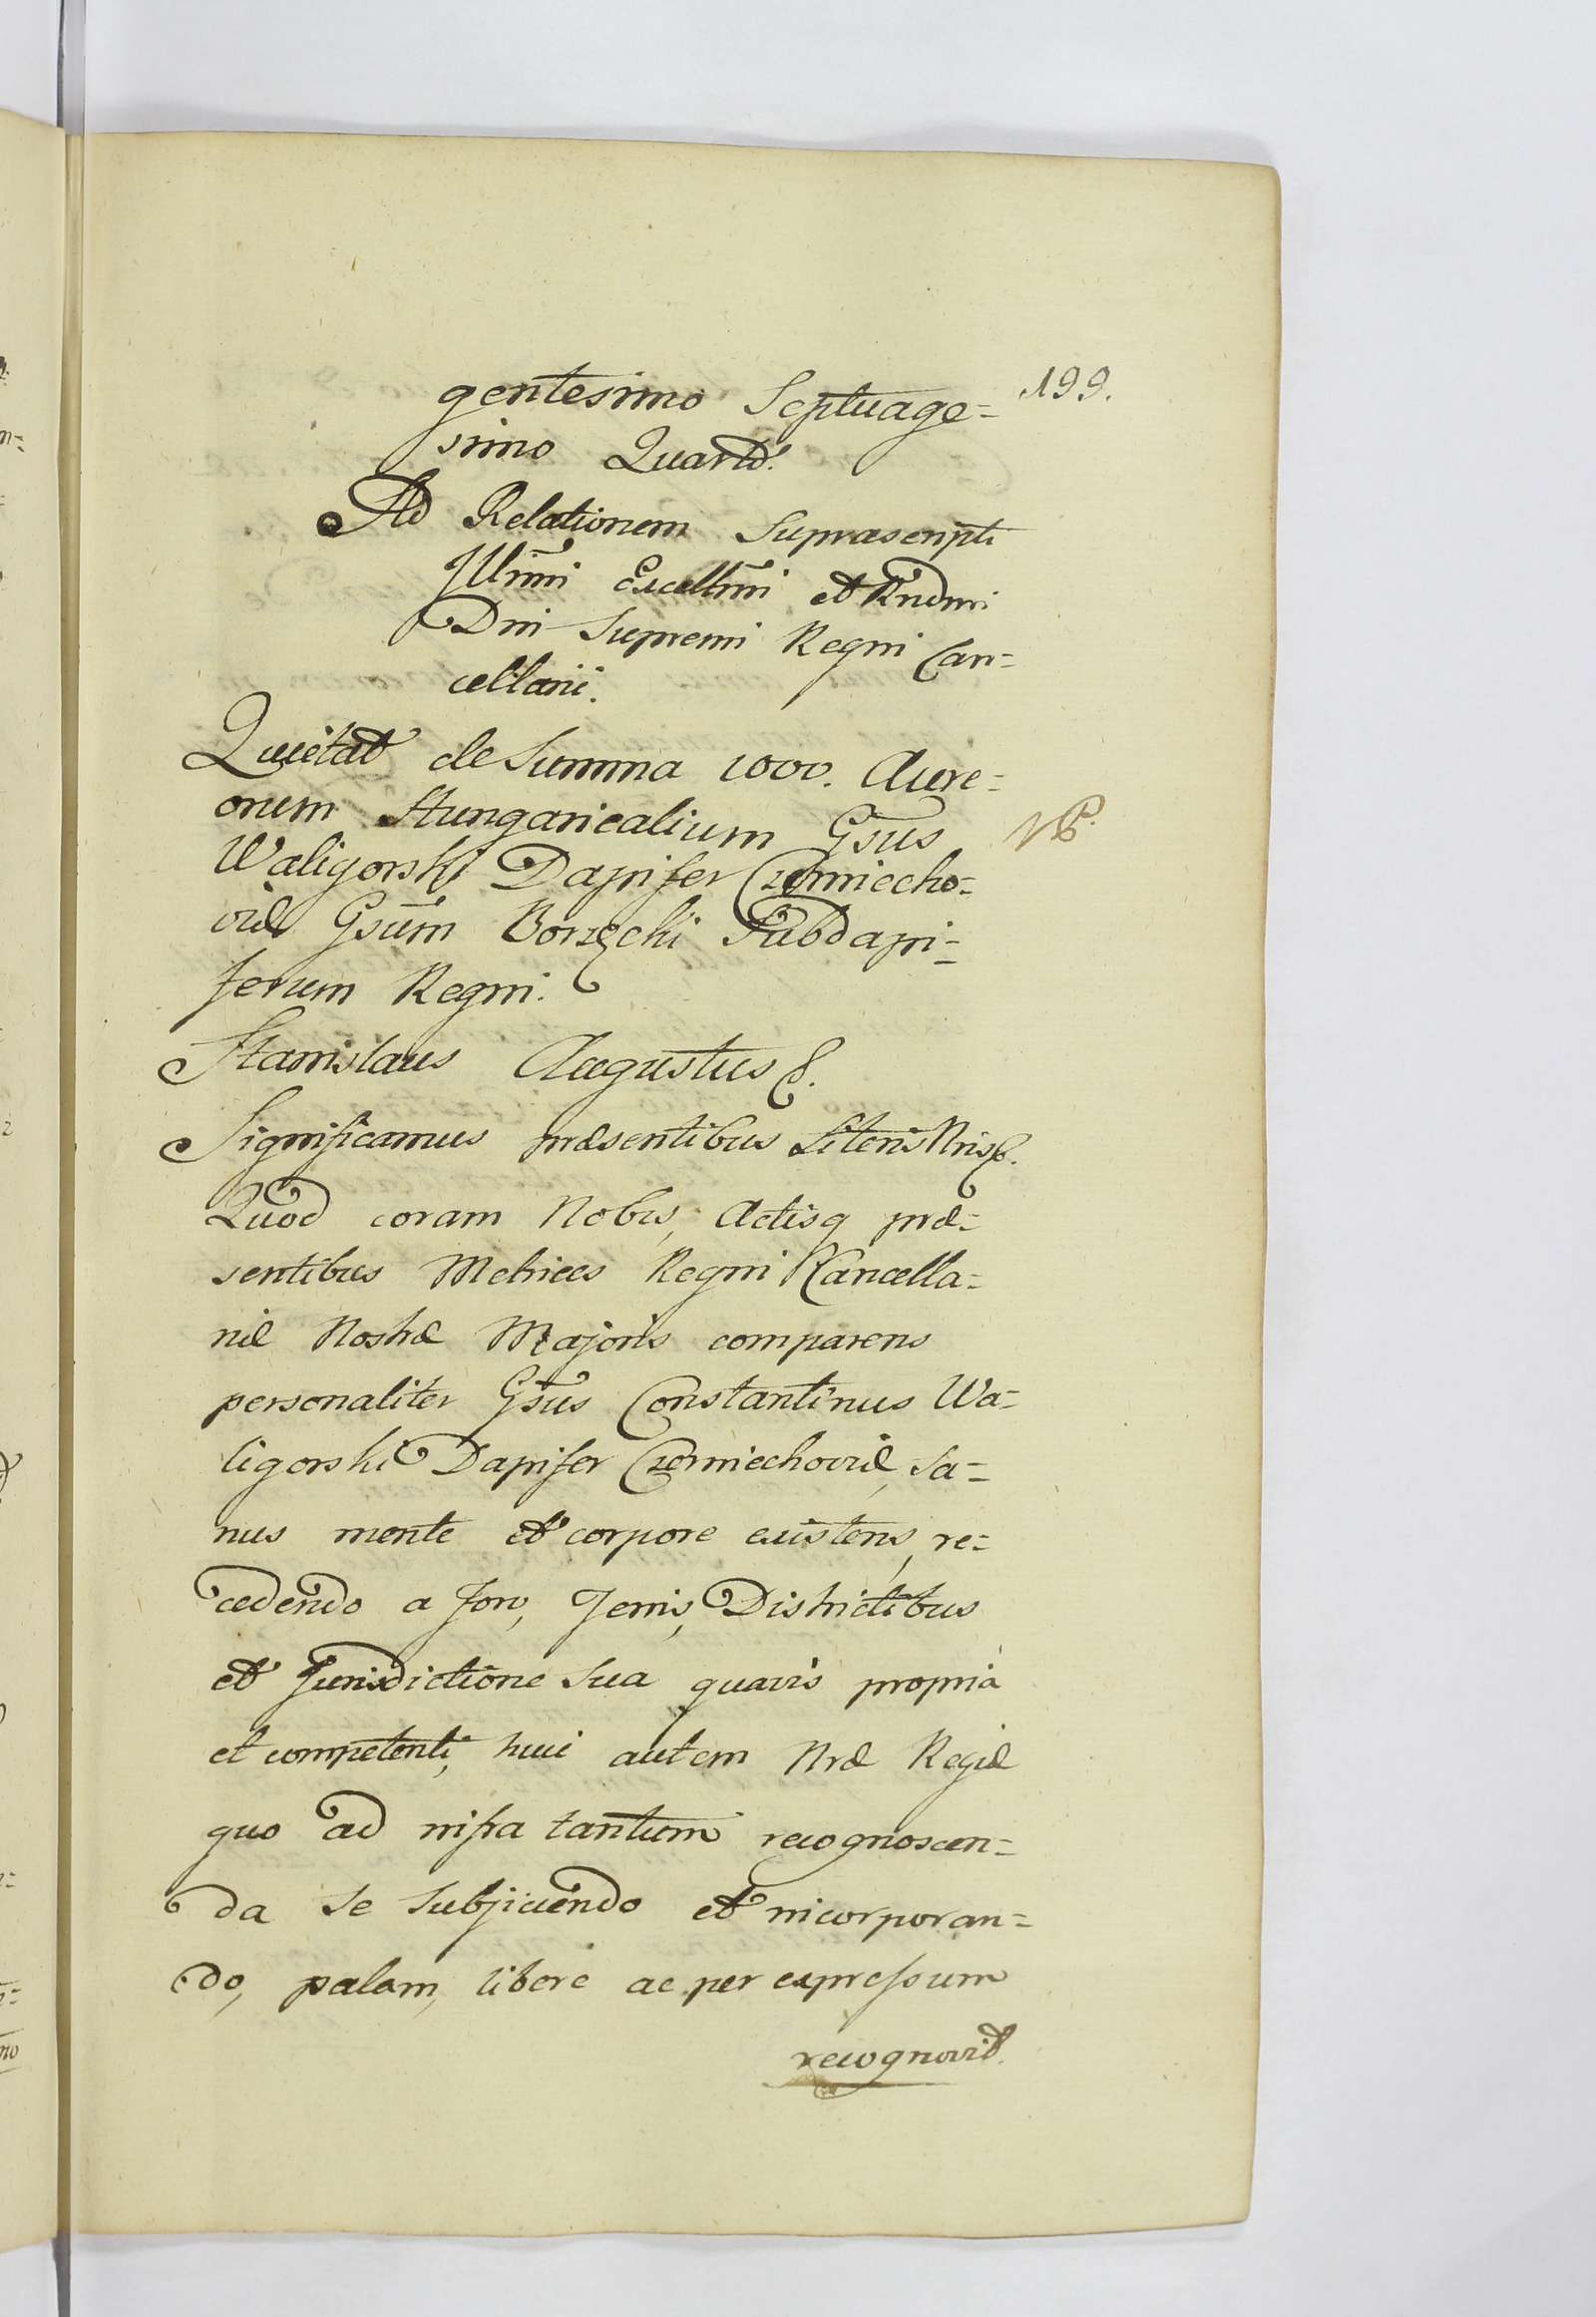 199.
gentesimo Septuage=
simo Quarto.
Ad Relationem Suprascripti
Illmi Excellmi et Rndmi
Dni Supremi Regni Can=
cellarii.
Quietat de Summa 1000. Aure=
orum Hungaricalium Gsus
Waligorski Dapifer Czerniecho=
viæ Gsum Borzęcki Subdapi=
ferum Regni.
Stanislaus Augustus &.
Significamus præsentibus Literis Nris &.
Quod coram Nobis, Actisq præ=
sentibus Metrices Regni Cancella=
riæ Nostræ Majoris comparens
personaliter Gsus Constantinus Wa=
ligorski Dapifer Czerniechoviæ, Sa=
nus mente et corpore existens, re=
cedendo a foro, Terris, Districtibus
et Jurisdictione Sua quavis proprià
et competenti, huic autem Nræ Regiæ
quo ad infra tantum recognoscen=
da se subjiciendo et incorporan=
do, palam, libere ac per expressum
recognovit.